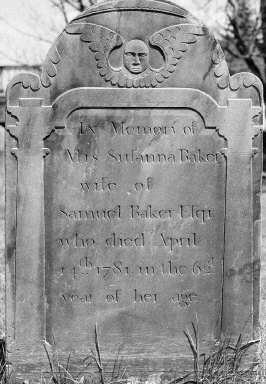 In Memory of
Mrs Suſanna Baker
wife of
Samuel Baker Eſqr
who died April
14th 1781. in the 62d
year of her age.